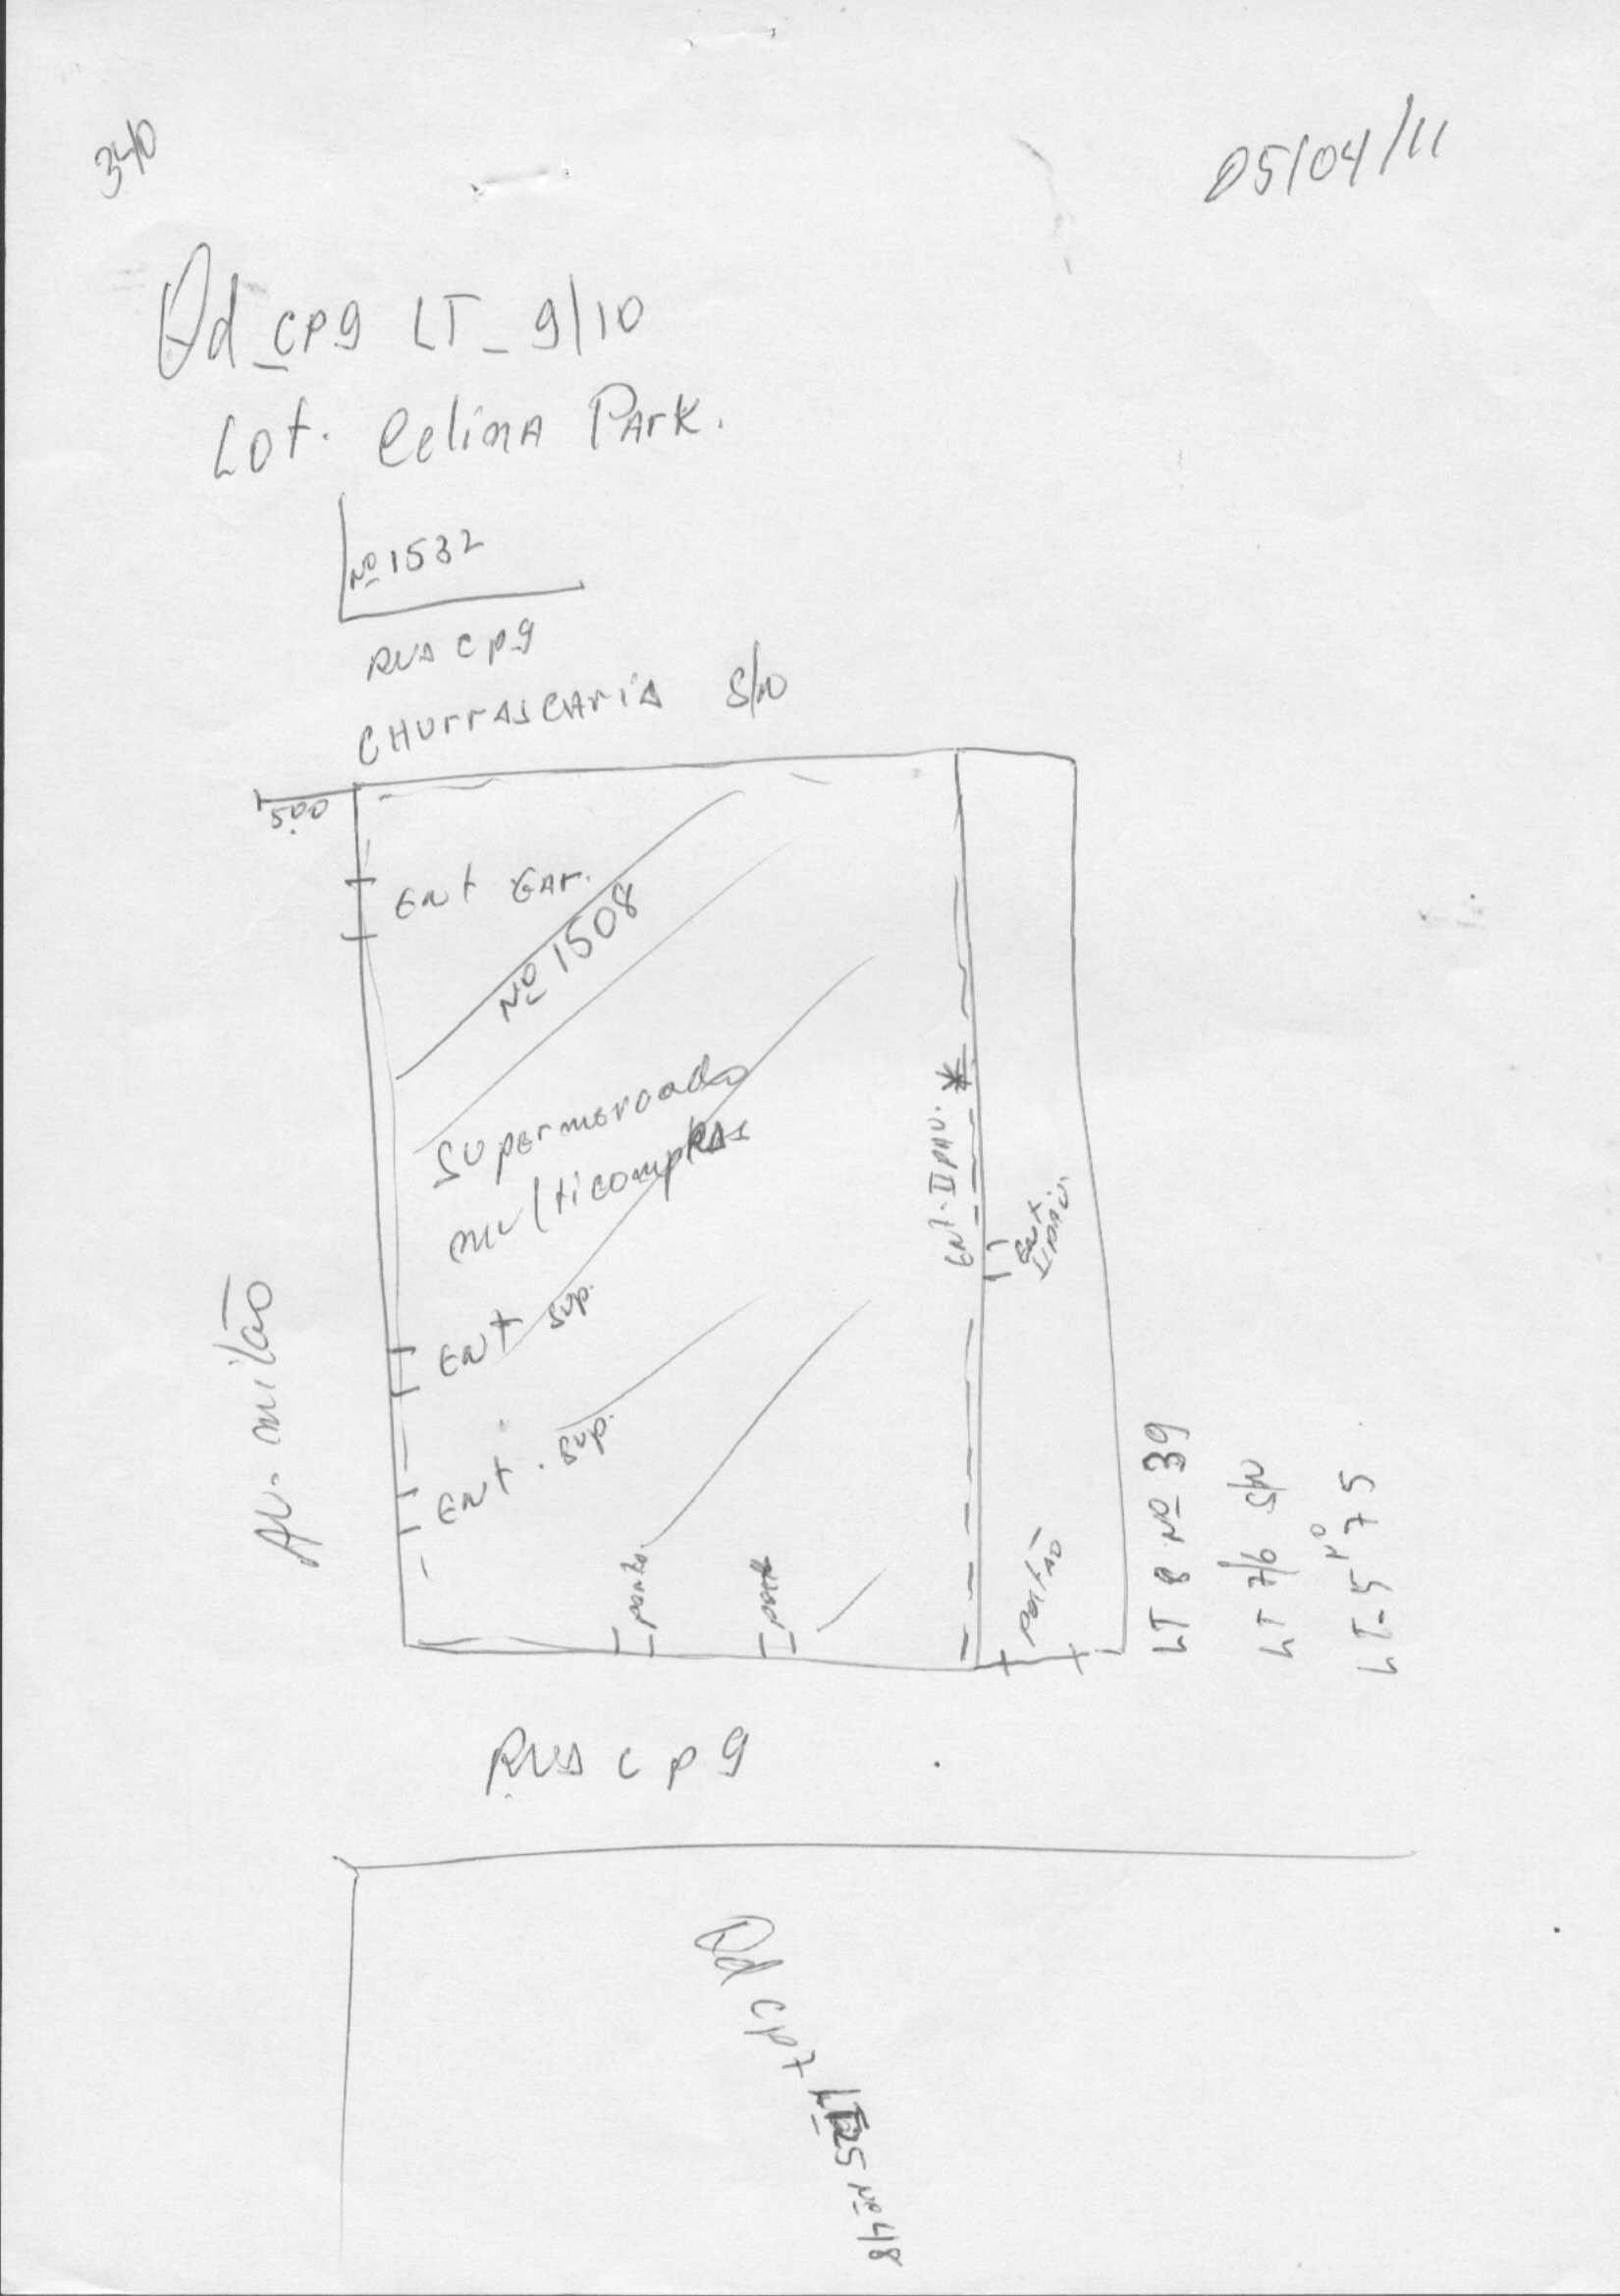 340
05/04/11
Qd_cp9 LT_ 9/10
Lot. Celina Park.
Nº 1532
RUA cp9
CHUrrAscAriA S/N
5.00
Ent GAr.
Nº 1508
Supermercado
multicompras
Ent. II PAV. *
Ent
II PAV.
Ent sup.
Ent. sup.
Av. milão
porta
porta
portão
LT 8 Nº 39
LT 7/6 S/N
LT-5 Nº 75
RUA cp9
Qd cp7 LT25 Nº 48